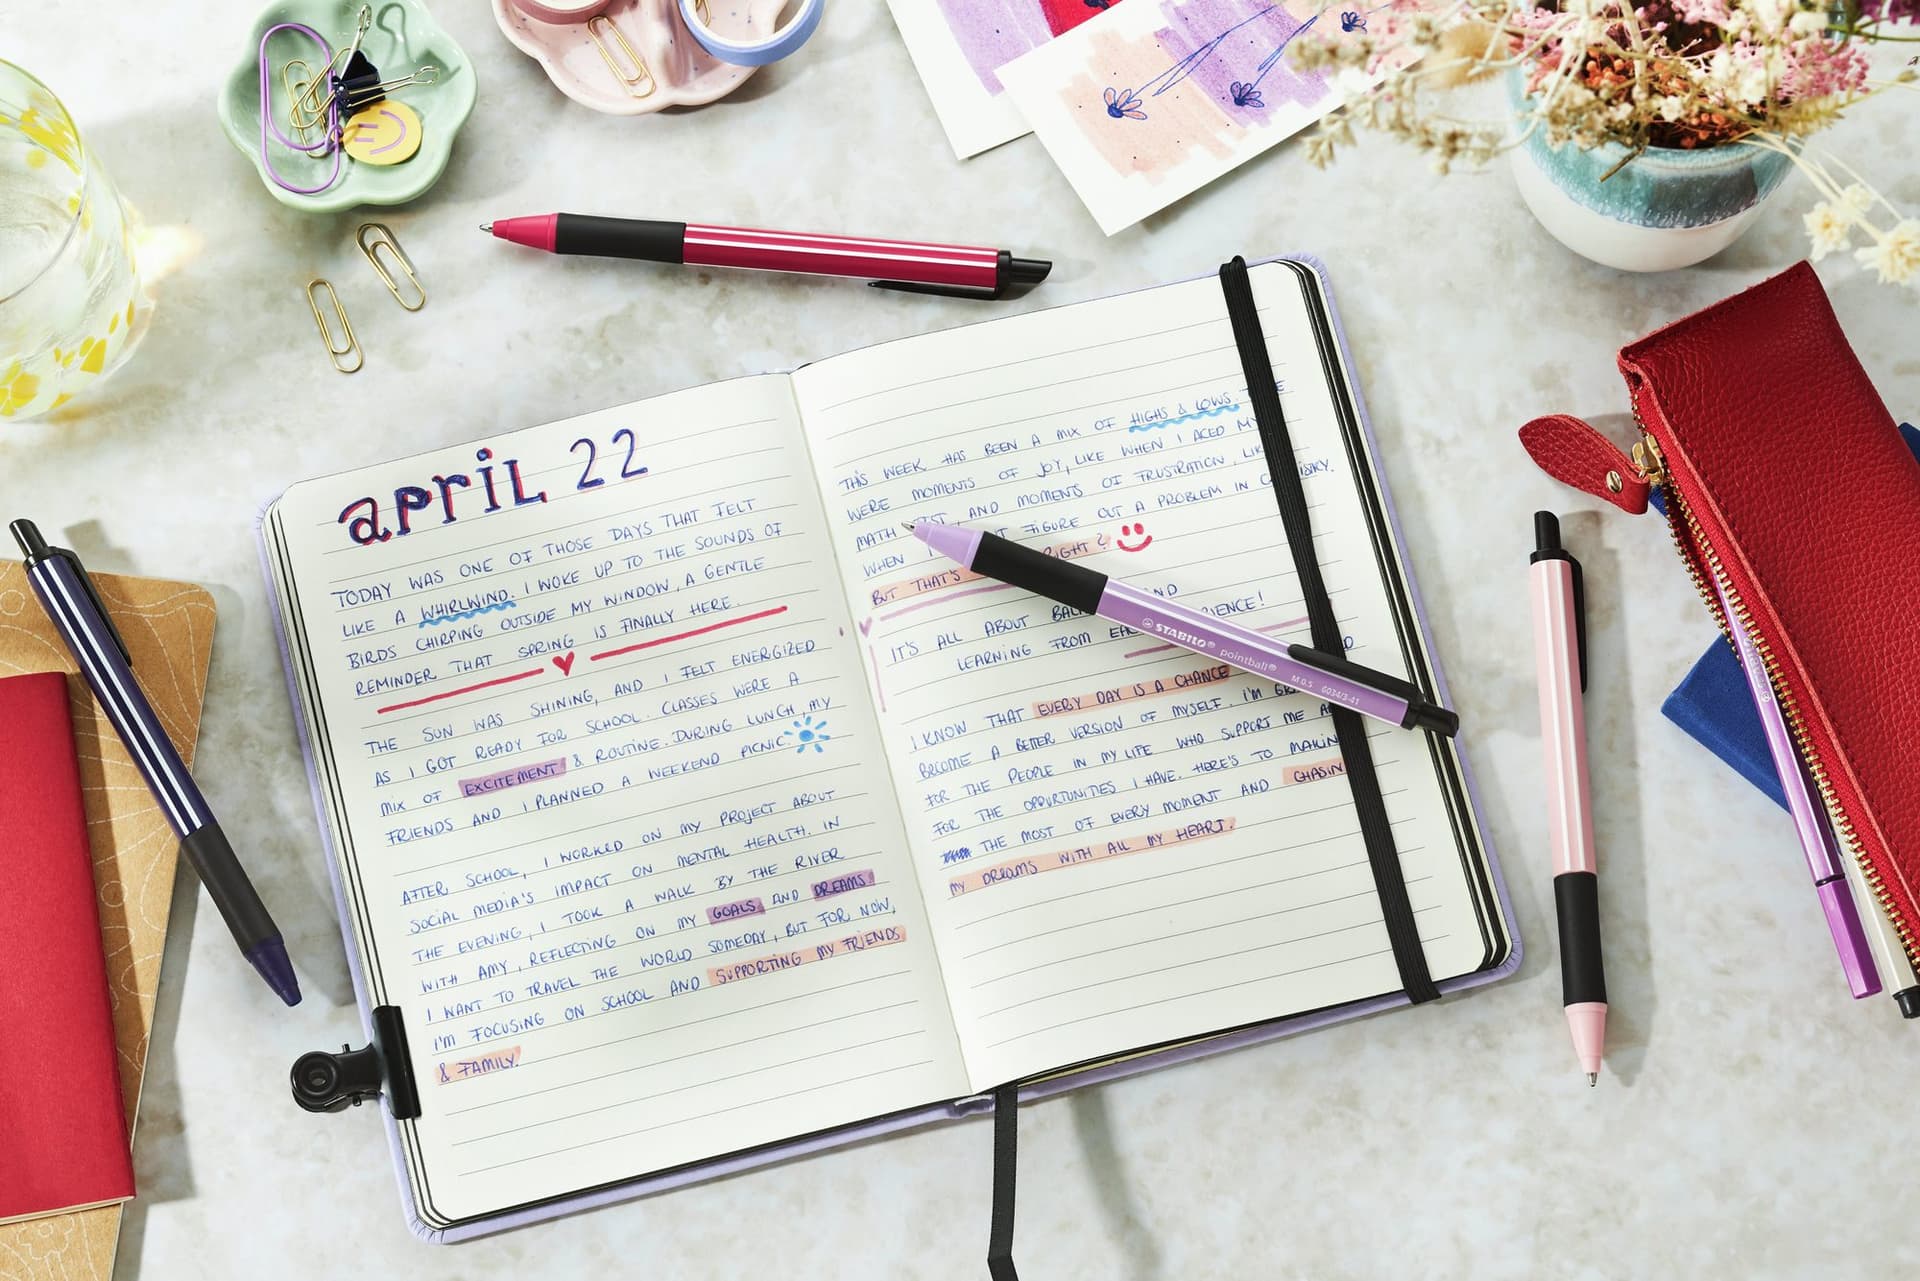 april 22
TODAY WAS ONE OF THOSE DAYS THAT FELT
LIKE A WHIRLWIND. I WOKE UP TO THE SOUNDS OF
BIRDS CHIRPING OUTSIDE MY WINDOW, A GENTLE
REMINDER THAT SPRING IS FINALLY HERE.
THE SUN WAS SHINING, AND I FELT ENERGIZED
AS I GOT READY FOR SCHOOL. CLASSES WERE A
MIX OF EXCITEMENT & ROUTINE. DURING LUNCH, MY
FRIENDS AND I PLANNED A WEEKEND PICNIC.
AFTER SCHOOL, I WORKED ON MY PROJECT ABOUT
SOCIAL MEDIA'S IMPACT ON MENTAL HEALTH. IN
THE EVENING, I TOOK A WALK BY THE RIVER
WITH AMY, REFLECTING ON MY GOALS AND DREAMS.
I WANT TO TRAVEL THE WORLD SOMEDAY, BUT FOR NOW,
I'M FOCUSING ON SCHOOL AND SUPPORTING MY FRIENDS
& FAMILY.
THIS WEEK HAS BEEN A MIX OF HIGHS & LOWS.
WERE MOMENTS OF JOY, LIKE WHEN I ACED MY
MATH AND MOMENTS OF FRUSTRATION,
WHEN I FIGURE OUT A PROBLEM IN
BUT THAT'S RIGHT?
IT'S ALL ABOUT
LEARNING FROM
I KNOW THAT EVERY DAY IS A CHANCE
BECOME A BETTER VERSION OF MYSELF. I'M
FOR THE PEOPLE IN MY LIFE WHO SUPPORT ME
FOR THE OPPORTUNITIES I HAVE. HERE'S TO
THE MOST OF EVERY MOMENT AND
MY DREAMS WITH ALL MY HEART.
STABILO® pointball®
M 0.5 6034/3-41